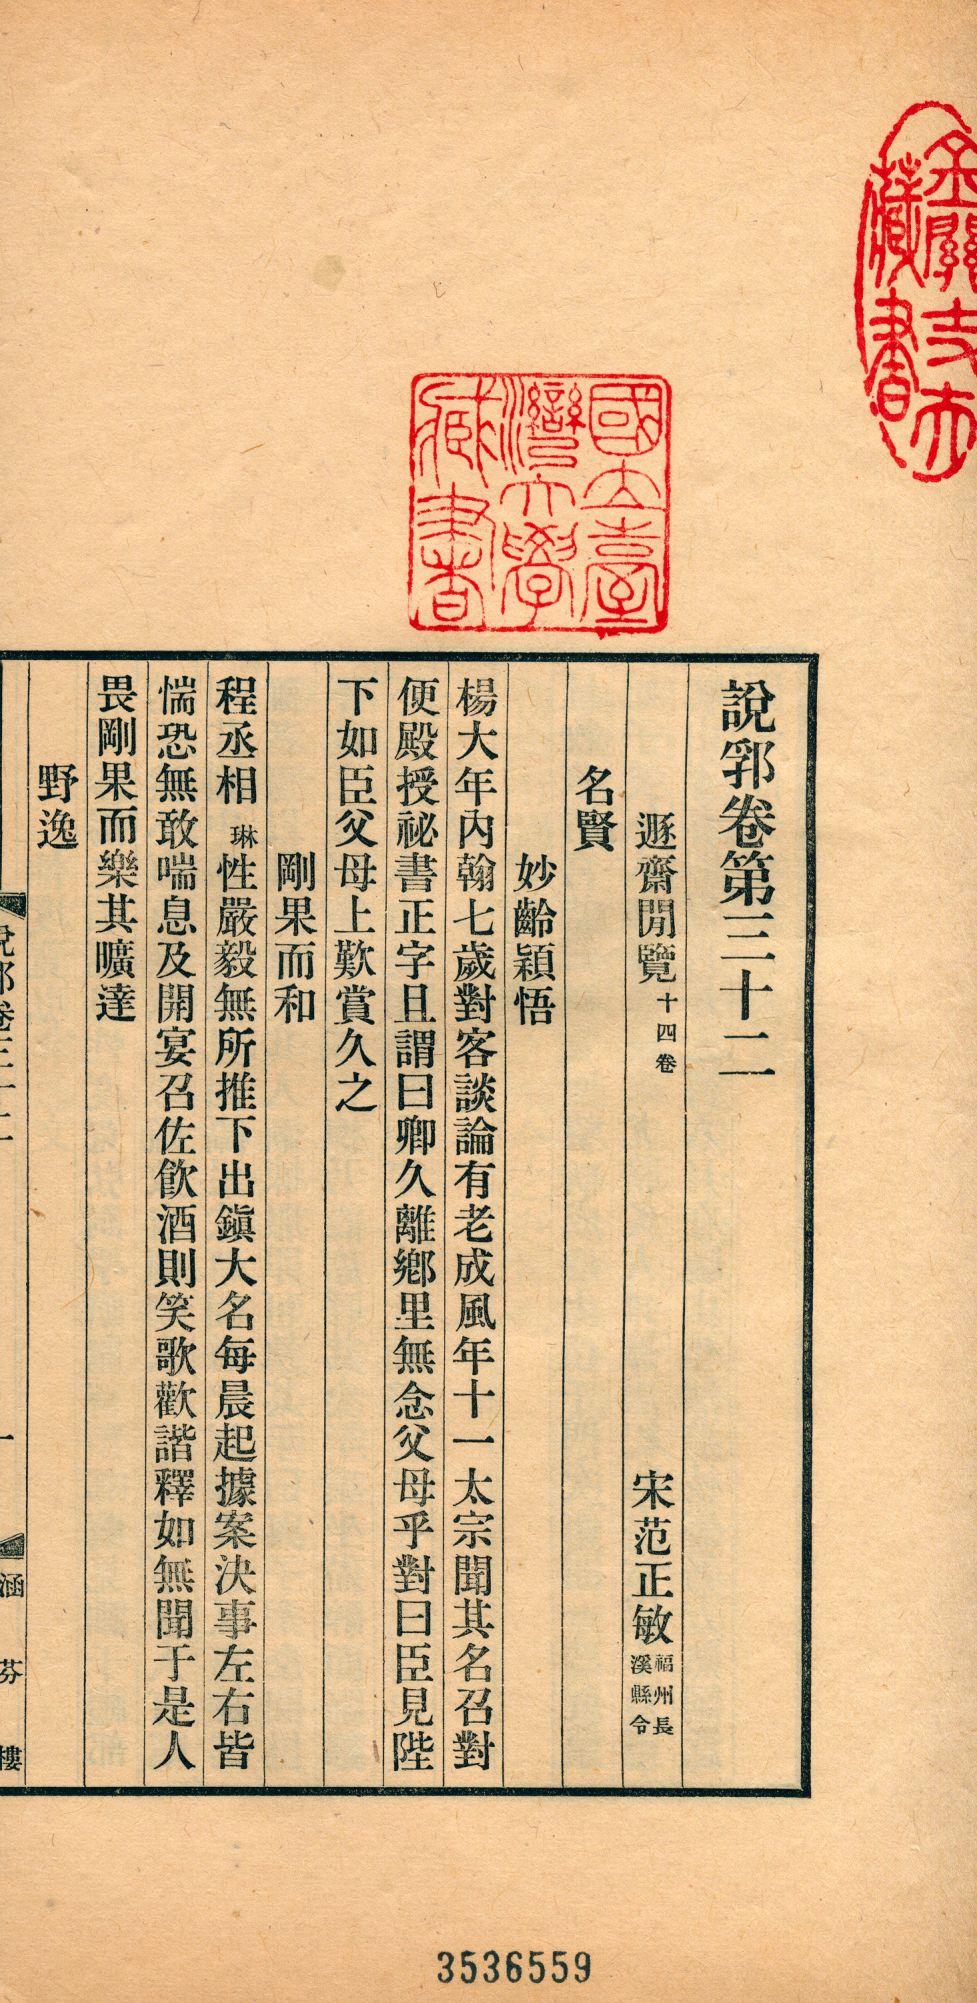 說郛卷第三十二
遯齋閒覽 十四卷 宋范正敏 福州長溪縣令
名賢
妙齡穎悟
楊大年內翰七歲對客談論有老成風年十一太宗聞其名召對
便殿授祕書正字且謂曰卿久離鄉里無念父母乎對曰臣見陛
下如臣父母上歎賞久之
剛果而和
程丞相 琳 性嚴毅無所推下出鎭大名每晨起據案決事左右皆
惴恐無敢喘息及開宴召佐飮酒則笑歌歡諧釋如無聞于是人
畏剛果而樂其曠達
野逸
說郛卷三十二
一
涵芬樓
國立臺灣大學藏書
藏書
3536559